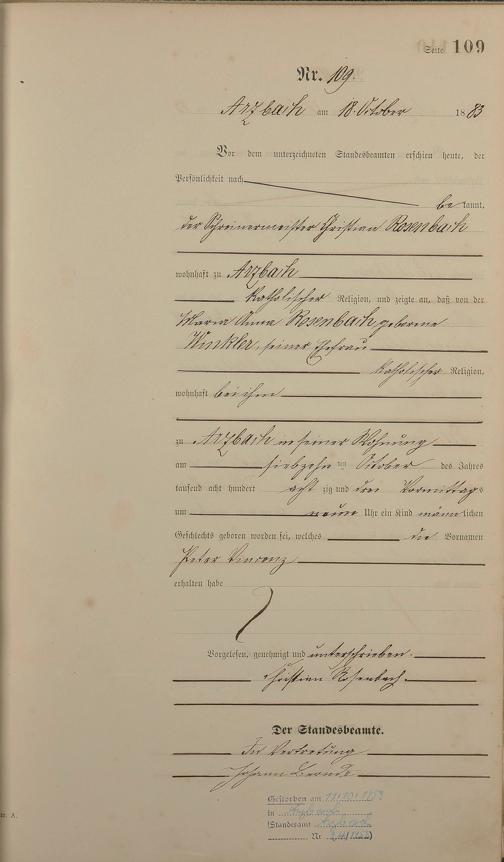 Seite 109
Nr. 109.
Arzbach am 18. October 1883
Vor dem unterzeichneten Standesbeamten erschien heute, der
Persönlichkeit nach
bekannt,
der Schreinermeister Christian Rosenbach
wohnhaft zu Arzbach
katholischer Religion, und zeigte an, daß von der
Maria Anna Rosenbach geborene
Winkler, seiner Ehefrau
katholischer Religion,
wohnhaft bei ihm
zu Arzbach in seiner Wohnung
am siebzehn ten October des Jahres
tausend acht hundert achtzig und drei Vormittags
um neun Uhr ein Kind männlichen
Geschlechts geboren worden sei, welches die Vornamen
Peter Vincenz
erhalten habe
Vorgelesen, genehmigt und unterschrieben.
Christian Rosenbach
Der Standesbeamte.
In Vertretung
Johann
Gestorben am
in
(Standesamt
Nr